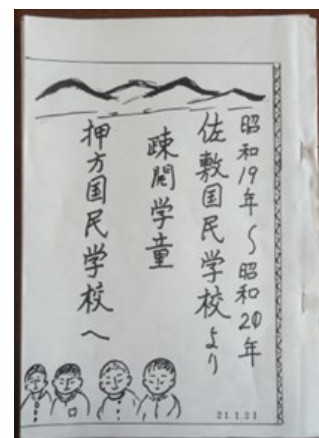 昭和19年～昭和20年
佐敷国民学校より
疎開学童
押方国民学校へ
21.1.21